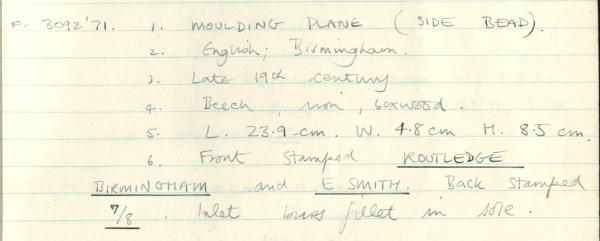 F. 3092'71. 1. MOULDING PLANE (SIDE BEAD).
2. English; Birmingham.
3. Late 19th century
4. Beech, iron, boxwood.
5. L. 23.9 cm. W. 4.8 cm H. 8.5 cm.
6. Front Stamped ROUTLEDGE
BIRMINGHAM and E. SMITH. Back stamped
7/8. Inlet brass fillet in sole.